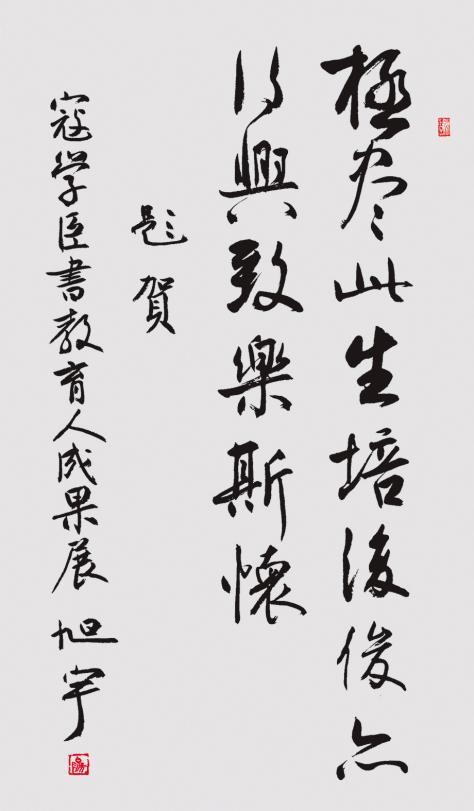 極尽此生培後俊亦
得興致樂斯懷
題賀
寇学臣書教育人成果展 旭宇